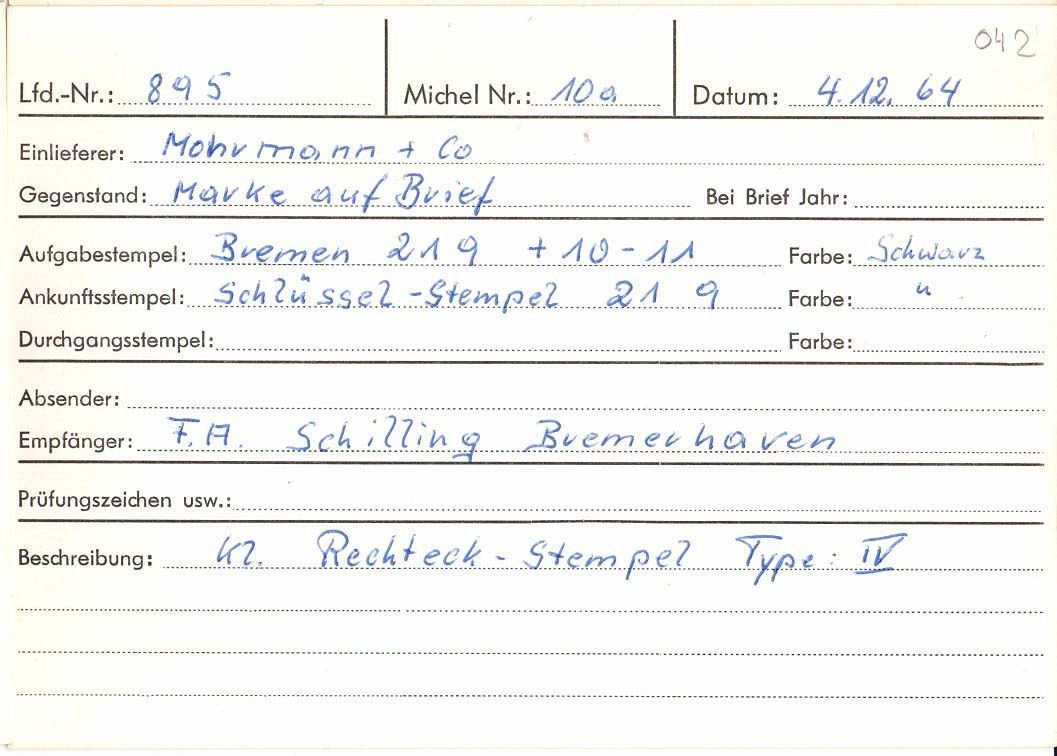 042
Lfd.-Nr.: 895 Michel Nr.: 10a Datum: 4.12.64
Einlieferer: Mohrmann + Co
Gegenstand: Marke auf Brief Bei Brief Jahr:
Aufgabestempel: Bremen 21 9 + 10-11 Farbe: Schwarz
Ankunftsstempel: Schlüssel-Stempel 21 9 Farbe: "
Durchgangsstempel: Farbe:
Absender:
Empfänger: F.A. Schilling Bremerhaven
Prüfungszeichen usw.:
Beschreibung: Kl. Rechteck-Stempel Type: IV